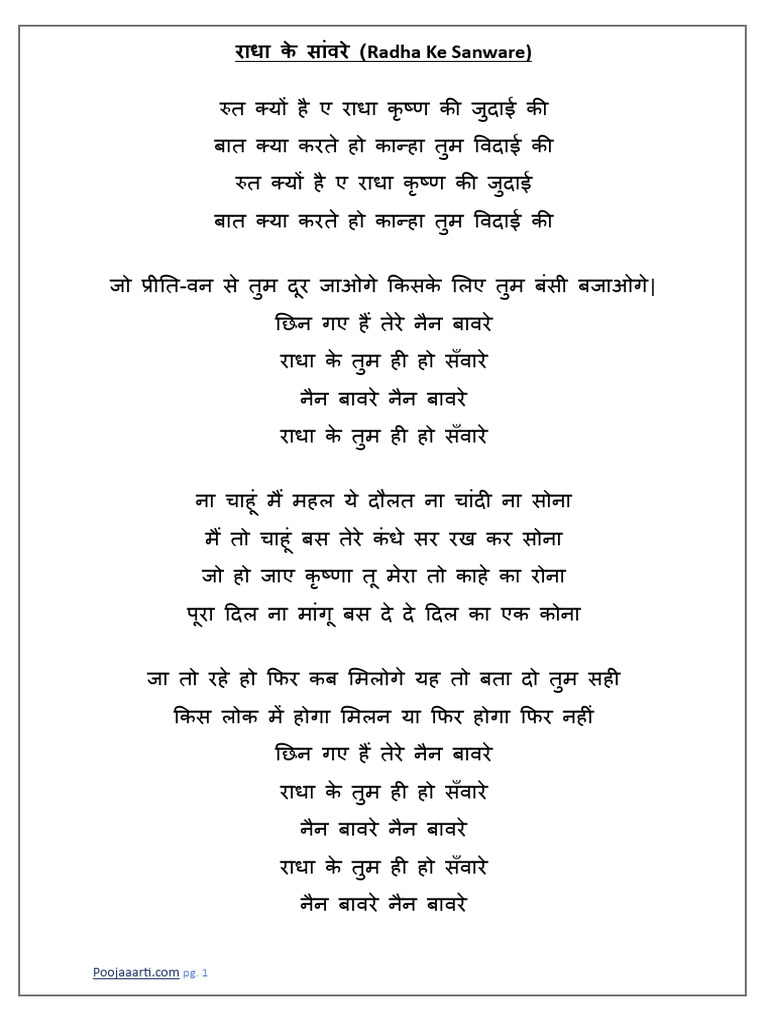 राधा के सांवरे (Radha Ke Sanware)
रुत क्यों है ए राधा कृष्ण की जुदाई की
बात क्या करते हो कान्हा तुम विदाई की
रुत क्यों है ए राधा कृष्ण की जुदाई
बात क्या करते हो कान्हा तुम विदाई की
जो प्रीति-वन से तुम दूर जाओगे किसके लिए तुम बंसी बजाओगे|
छिन गए हैं तेरे नैन बावरे
राधा के तुम ही हो सँवारे
नैन बावरे नैन बावरे
राधा के तुम ही हो सँवारे
ना चाहूं मैं महल ये दौलत ना चांदी ना सोना
मैं तो चाहूं बस तेरे कंधे सर रख कर सोना
जो हो जाए कृष्णा तू मेरा तो काहे का रोना
पूरा दिल ना मांगू बस दे दे दिल का एक कोना
जा तो रहे हो फिर कब मिलोगे यह तो बता दो तुम सही
किस लोक में होगा मिलन या फिर होगा फिर नहीं
छिन गए हैं तेरे नैन बावरे
राधा के तुम ही हो सँवारे
नैन बावरे नैन बावरे
राधा के तुम ही हो सँवारे
नैन बावरे नैन बावरे
Poojaaarti.com pg. 1